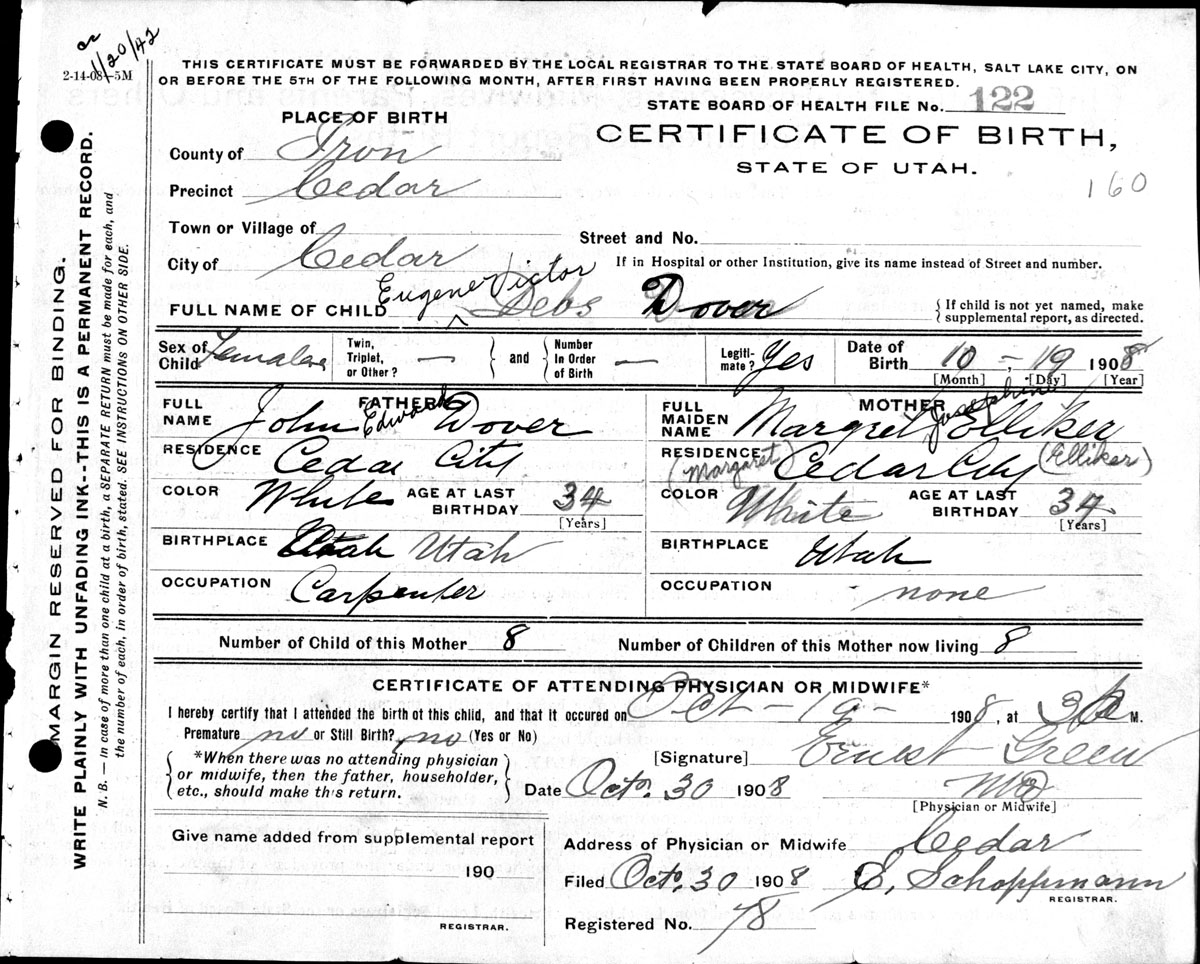 or
11/20/42
2-14-08—5M
THIS CERTIFICATE MUST BE FORWARDED BY THE LOCAL REGISTRAR TO THE STATE BOARD OF HEALTH, SALT LAKE CITY, ON
OR BEFORE THE 5TH OF THE FOLLOWING MONTH, AFTER FIRST HAVING BEEN PROPERLY REGISTERED.
STATE BOARD OF HEALTH FILE No. 122
PLACE OF BIRTH
CERTIFICATE OF BIRTH,
STATE OF UTAH.
160
County of Iron
Precinct Cedar
Town or Village of
Street and No.
City of Cedar
If in Hospital or other Institution, give its name instead of Street and number.
FULL NAME OF CHILD Eugene Victor Debs Dover
{If child is not yet named, make supplemental report, as directed.
Sex of Child Female Twin, Triplet, or Other? — and Number In Order of Birth — Legiti-mate? Yes Date of Birth 10 - 19 1908
[Month] [Day] [Year]
FATHER
FULL NAME John Edward Dover
RESIDENCE Cedar City
COLOR White AGE AT LAST BIRTHDAY 34 [Years]
BIRTHPLACE Utah Utah
OCCUPATION Carpenter
MOTHER
FULL MAIDEN NAME Margret Josephine Elliker
RESIDENCE (Margaret) Cedar City (Elliker)
COLOR White AGE AT LAST BIRTHDAY 34 [Years]
BIRTHPLACE Utah
OCCUPATION none
Number of Child of this Mother 8 Number of Children of this Mother now living 8
CERTIFICATE OF ATTENDING PHYSICIAN OR MIDWIFE*
I hereby certify that I attended the birth ot this child, and that it occured on Oct - 19 - 1908, at 3 P M.
Premature no or Still Birth? no (Yes or No)
*When there was no attending physician
or midwife, then the father, householder,
etc., should make this return.
[Signature] Ernest Green
Date Oct. 30 1908 MD
[Physician or Midwife]
Give name added from supplemental report
190
REGISTRAR.
Address of Physician or Midwife Cedar
Filed Oct. 30 1908 E, Schoppmann
REGISTRAR.
Registered No. 78
MARGIN RESERVED FOR BINDING.
WRITE PLAINLY WITH UNFADING INK--THIS IS A PERMANENT RECORD.
N. B. — In case of more than one child at a birth, a SEPARATE RETURN must be made for each, and
the number of each, in order of birth, stated. SEE INSTRUCTIONS ON OTHER SIDE.